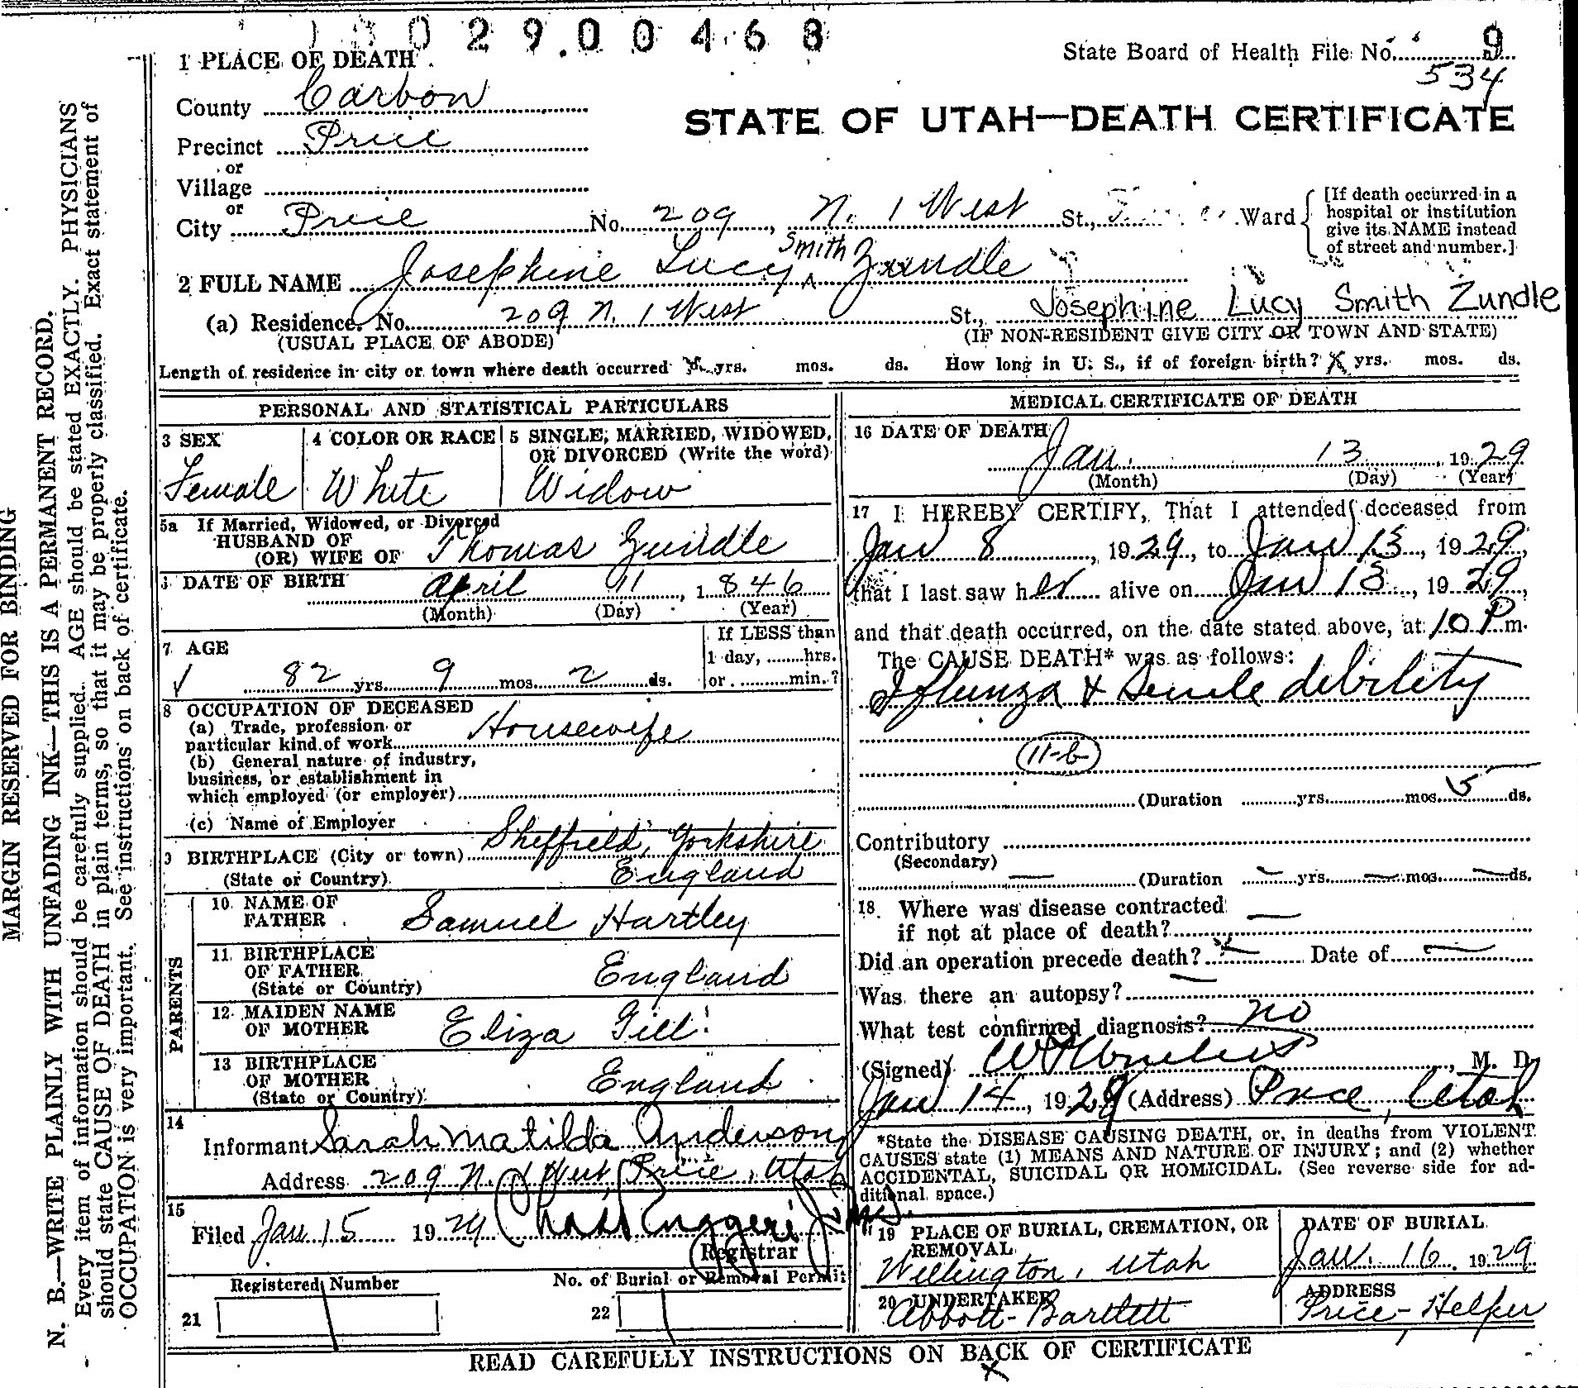 029.00468
State Board of Health File No. 9
534
1 PLACE OF DEATH
County Carbon
STATE OF UTAH—DEATH CERTIFICATE
Precinct Price
or
Village
or
City Price No. 209, N. 1 West St., Ward
[If death occurred in a
hospital or institution
give its NAME instead
of street and number.]
2 FULL NAME Josephine Lucy Smith Zundle
(a) Residence. No. 209 N. 1 West St., Josephine Lucy Smith Zundle
(USUAL PLACE OF ABODE) (IF NON-RESIDENT GIVE CITY OR TOWN AND STATE)
Length of residence in city or town where death occurred yrs. mos. ds. How long in U. S., if of foreign birth? X yrs. mos. ds.
PERSONAL AND STATISTICAL PARTICULARS
3 SEX
Female
4 COLOR OR RACE
White
5 SINGLE, MARRIED, WIDOWED,
OR DIVORCED (Write the word)
Widow
5a If Married, Widowed, or Divorced
HUSBAND OF
(OR) WIFE OF Thomas Zundle
DATE OF BIRTH April 11, 1846
(Month) (Day) (Year)
7 AGE
82 yrs. 9 mos. 2 ds.
If LESS than
1 day, ....... hrs.
or .......... min.?
8 OCCUPATION OF DECEASED
(a) Trade, profession or
particular kind of work Housewife
(b) General nature of industry,
business, or establishment in
which employed (or employer)
(c) Name of Employer
9 BIRTHPLACE (City or town) Sheffield, Yorkshire
(State or Country) England
PARENTS
10 NAME OF
FATHER Samuel Hartley
11 BIRTHPLACE
OF FATHER England
(State or Country)
12 MAIDEN NAME
OF MOTHER Eliza Gill
13 BIRTHPLACE
OF MOTHER England
(State or Country)
14
Informant Sarah Matilda Anderson
Address 209 N. 1 West, Price, Utah
15
Filed Jan 15 1929
Registrar
Registered Number
No. of Burial or Removal Permit
21
22
MEDICAL CERTIFICATE OF DEATH
16 DATE OF DEATH
Jan. 13, 1929
(Month) (Day) (Year)
17 I HEREBY CERTIFY, That I attended deceased from
Jan 8, 1929, to Jan 13, 1929,
that I last saw her alive on Jan 13, 1929,
and that death occurred, on the date stated above, at 10 P m.
The CAUSE DEATH* was as follows:
Iflunza & Senile debility
11-b
(Duration yrs. mos. 5 ds.
Contributory
(Secondary)
(Duration — yrs. — mos. — ds.
18. Where was disease contracted
if not at place of death? —
Did an operation precede death? — Date of —
Was there an autopsy? —
What test confirmed diagnosis? no
(Signed) , M. D.
Jan 14, 1929 (Address) Price, Utah
*State the DISEASE CAUSING DEATH, or, in deaths from VIOLENT
CAUSES state (1) MEANS AND NATURE OF INJURY; and (2) whether
ACCIDENTAL, SUICIDAL OR HOMICIDAL. (See reverse side for ad-
ditional space.)
19 PLACE OF BURIAL, CREMATION, OR
REMOVAL
Wellington, Utah
DATE OF BURIAL
Jan. 16 1929
20 UNDERTAKER
Abbott-Bartlett
ADDRESS
Price-Helper
READ CAREFULLY INSTRUCTIONS ON BACK OF CERTIFICATE
MARGIN RESERVED FOR BINDING
N. B.—WRITE PLAINLY WITH UNFADING INK—THIS IS A PERMANENT RECORD.
Every item of information should be carefully supplied. AGE should be stated EXACTLY. PHYSICIANS
should state CAUSE OF DEATH in plain terms, so that it may be properly classified. Exact statement of
OCCUPATION is very important. See instructions on back of certificate.